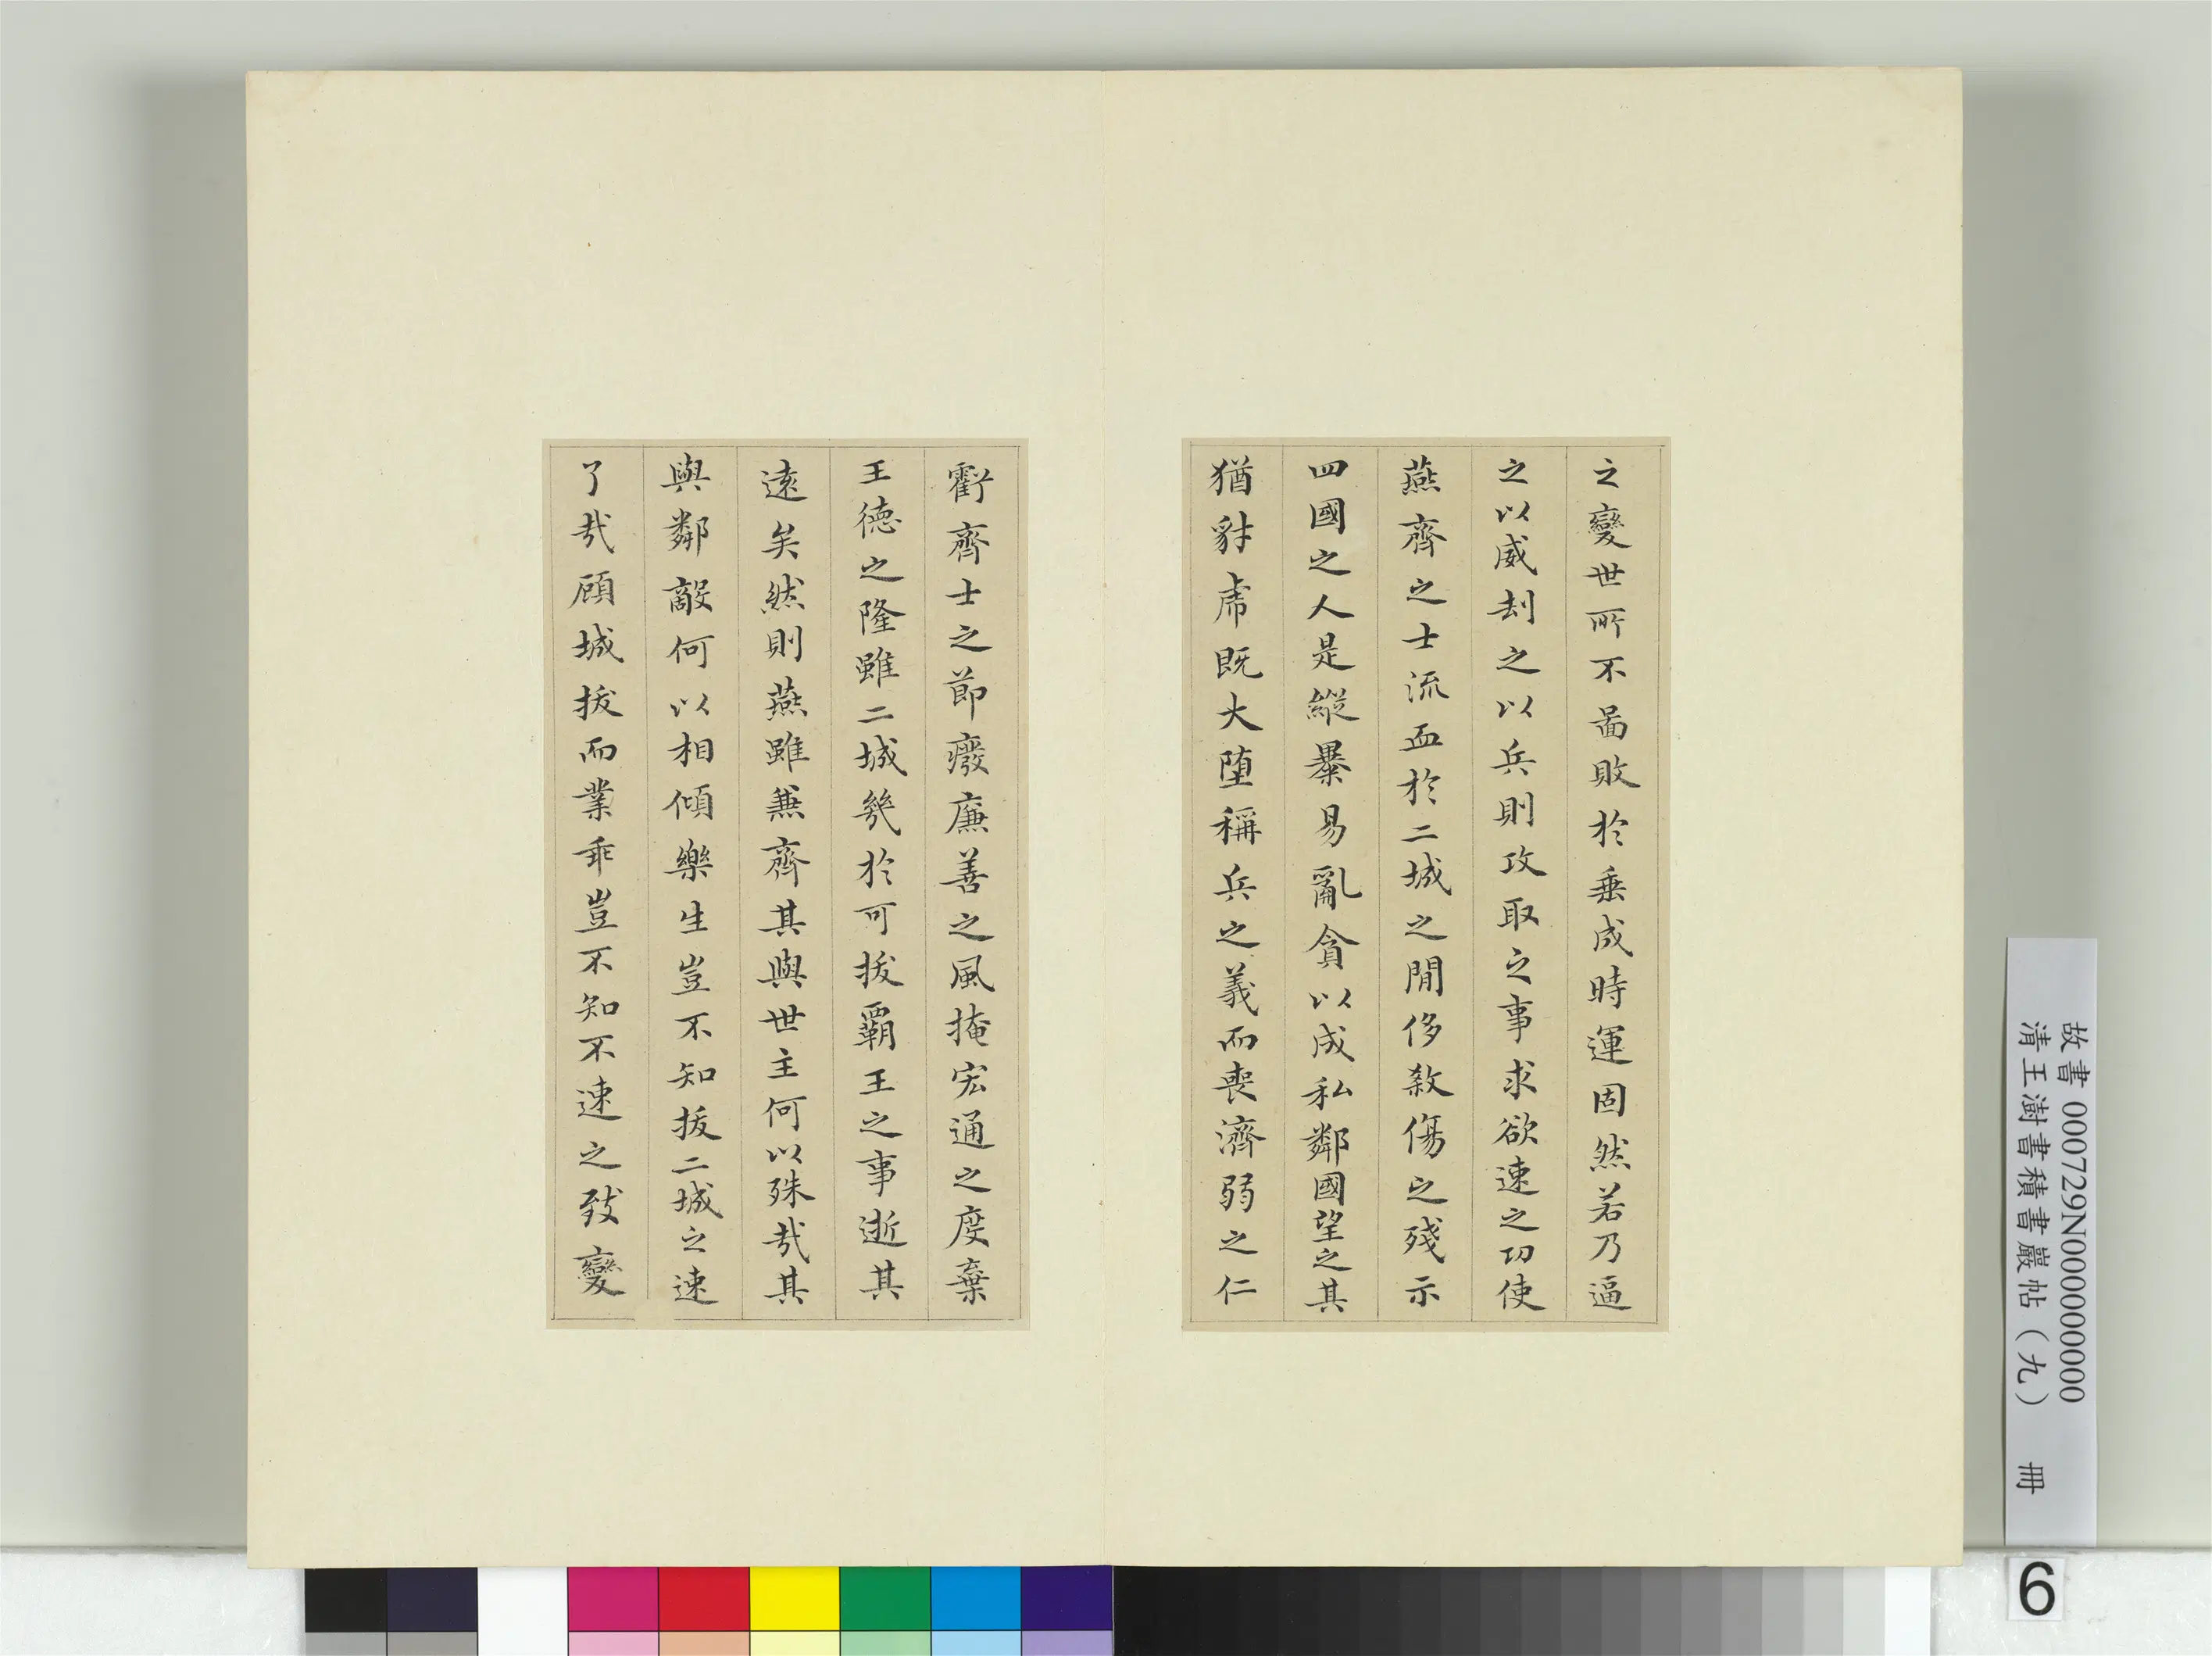 之變世所不啚敗於垂成時運固然若乃逼
之以威刦之以兵則攻取之事求欲速之功使
燕齊之士流血於二城之閒侈殺傷之殘示
四國之人是縱暴易亂貪以成私鄰國望之其
猶豺虎既大墮稱兵之義而喪濟弱之仁
虧齊士之節廢廉善之風掩宏通之度棄
王德之隆雖二城幾於可拔覇王之事逝其
遠矣然則燕雖兼齊其與世主何以殊哉其
與鄰敵何以相傾樂生豈不知拔二城之速
了哉顧城拔而業乖豈不知不速之致變
故書 000729N000000000
清王澍書積書巖帖（九） 冊
6